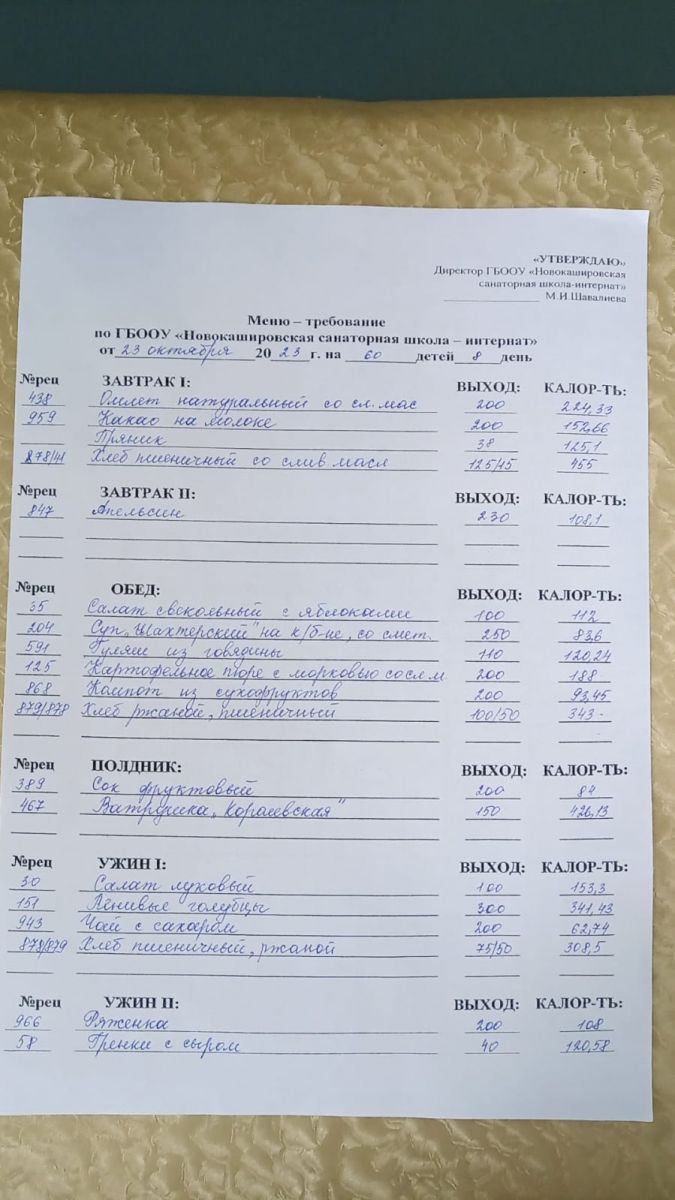 «УТВЕРЖДАЮ»
Директор ГБООУ «Новокашировская
санаторная школа-интернат»
М.И.Шавалиева
Меню – требование
по ГБООУ «Новокашировская санаторная школа – интернат»
от 23 октября 2023 г. на 60 детей 8 день
№рец ЗАВТРАК I: ВЫХОД: КАЛОР-ТЬ:
438 Омлет натуральный со сл. мас 200 224,33
959 Какао на молоке 200 152,66
Пряник 38 125,1
878/41 Хлеб пшеничный со слив. масл 125/45 455
№рец ЗАВТРАК II: ВЫХОД: КАЛОР-ТЬ:
847 Апельсин 230 108,1
№рец ОБЕД: ВЫХОД: КАЛОР-ТЬ:
35 Салат свекольный с яблоками 100 112
204 Суп „Шахтерский" на к/б-не, со смет. 250 83,6
591 Гуляш из говядины 110 120,24
125 Картофельное пюре с морковью со сл м 200 188
868 Компот из сухофруктов 200 93,45
879/878 Хлеб ржаной, пшеничный 100/50 343-
№рец ПОЛДНИК: ВЫХОД: КАЛОР-ТЬ:
389 Сок фруктовый 200 84
467 Ватрушка „Королевская" 150 426,13
№рец УЖИН I: ВЫХОД: КАЛОР-ТЬ:
30 Салат луковый 100 153,3
151 Ленивые голубцы 300 341,43
943 Чай с сахаром 200 62,74
878/879 Хлеб пшеничный, ржаной 75/50 308,5
№рец УЖИН II: ВЫХОД: КАЛОР-ТЬ:
966 Ряженка 200 108
58 Гренки с сыром 40 120,58